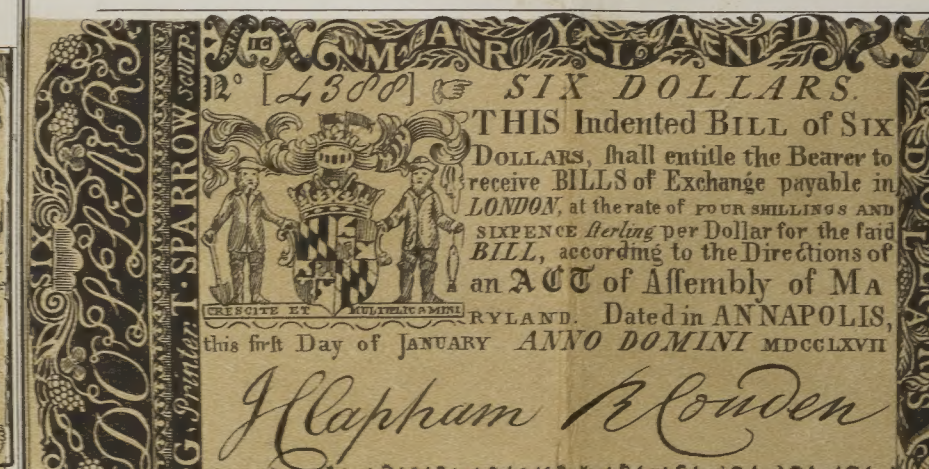 MARYLAND
No [4388] ☞ SIX DOLLARS.
THIS Indented BILL of SIX
DOLLARS, ſhall entitle the Bearer to
receive BILLS of Exchange payable in
LONDON, at the rate of FOUR SHILLINGS AND
SIXPENCE ſterling per Dollar for the ſaid
BILL, according to the Directions of
an ACT of Aſſembly of MA
RYLAND. Dated in ANNAPOLIS,
this firſt Day of JANUARY ANNO DOMINI MDCCLXVII
CRESCITE ET MULTIPLICAMINI
J Clapham R Couden
SIX DOLLARS
G, Printer T·SPARROW SCULP.
DOLLARS